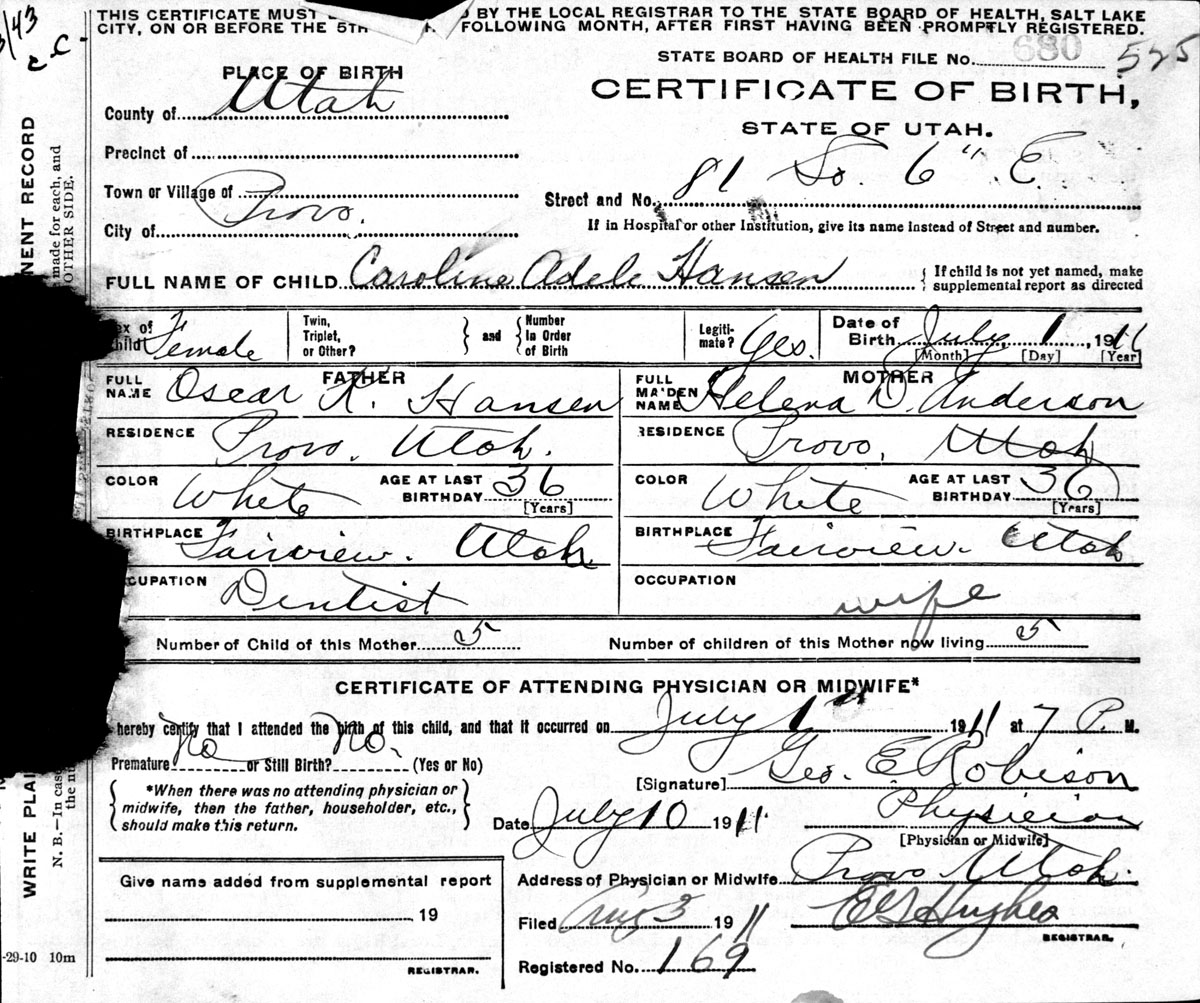 THIS CERTIFICATE MUST BY THE LOCAL REGISTRAR TO THE STATE BOARD OF HEALTH, SALT LAKE
CITY, ON OR BEFORE THE 5TH FOLLOWING MONTH, AFTER FIRST HAVING BEEN PROMPTLY REGISTERED.
STATE BOARD OF HEALTH FILE No. 680 525
PLACE OF BIRTH
CERTIFICATE OF BIRTH,
County of Utah
STATE OF UTAH.
Precinct of
Town or Village of
Street and No. 81 So. 6" E.
City of Provo.
If in Hospital or other Institution, give its name instead of Street and number.
FULL NAME OF CHILD Caroline Adele Hansen { If child is not yet named, make supplemental report as directed
ex of hild Female Twin, Triplet, or Other? } and { Number In Order of Birth Legiti-mate? Yes. Date of Birth July 1, 1911
[Month] [Day] [Year]
FATHER MOTHER
FULL NAME Oscar K. Hansen FULL MAIDEN NAME Helena D. Anderson
RESIDENCE Provo. Utah. RESIDENCE Provo, Utah
COLOR White AGE AT LAST BIRTHDAY 36 [Years] COLOR White AGE AT LAST BIRTHDAY 36 [Years]
BIRTHPLACE Fairview. Utah. BIRTHPLACE Fairview. Utah
CUPATION Dentist OCCUPATION wife
Number of Child of this Mother 5 Number of children of this Mother now living 5
CERTIFICATE OF ATTENDING PHYSICIAN OR MIDWIFE*
hereby certify that I attended the birth of this child, and that it occurred on July 1st 1911 at 7 P. M.
Premature No or Still Birth? No. (Yes or No)
[Signature] Geo. E. Robison
{ *When there was no attending physician or midwife, then the father, householder, etc., should make this return. }
Date July 10 1911 Physician
[Physician or Midwife]
Give name added from supplemental report
Address of Physician or Midwife Provo Utah.
19
Filed Aug 3 1911 Hughes
REGISTRAR.
-29-10 10m
REGISTRAR.
Registered No. 169
NENT RECORD
made for each, and
OTHER SIDE.
WRITE PLAI
N. B.—In case